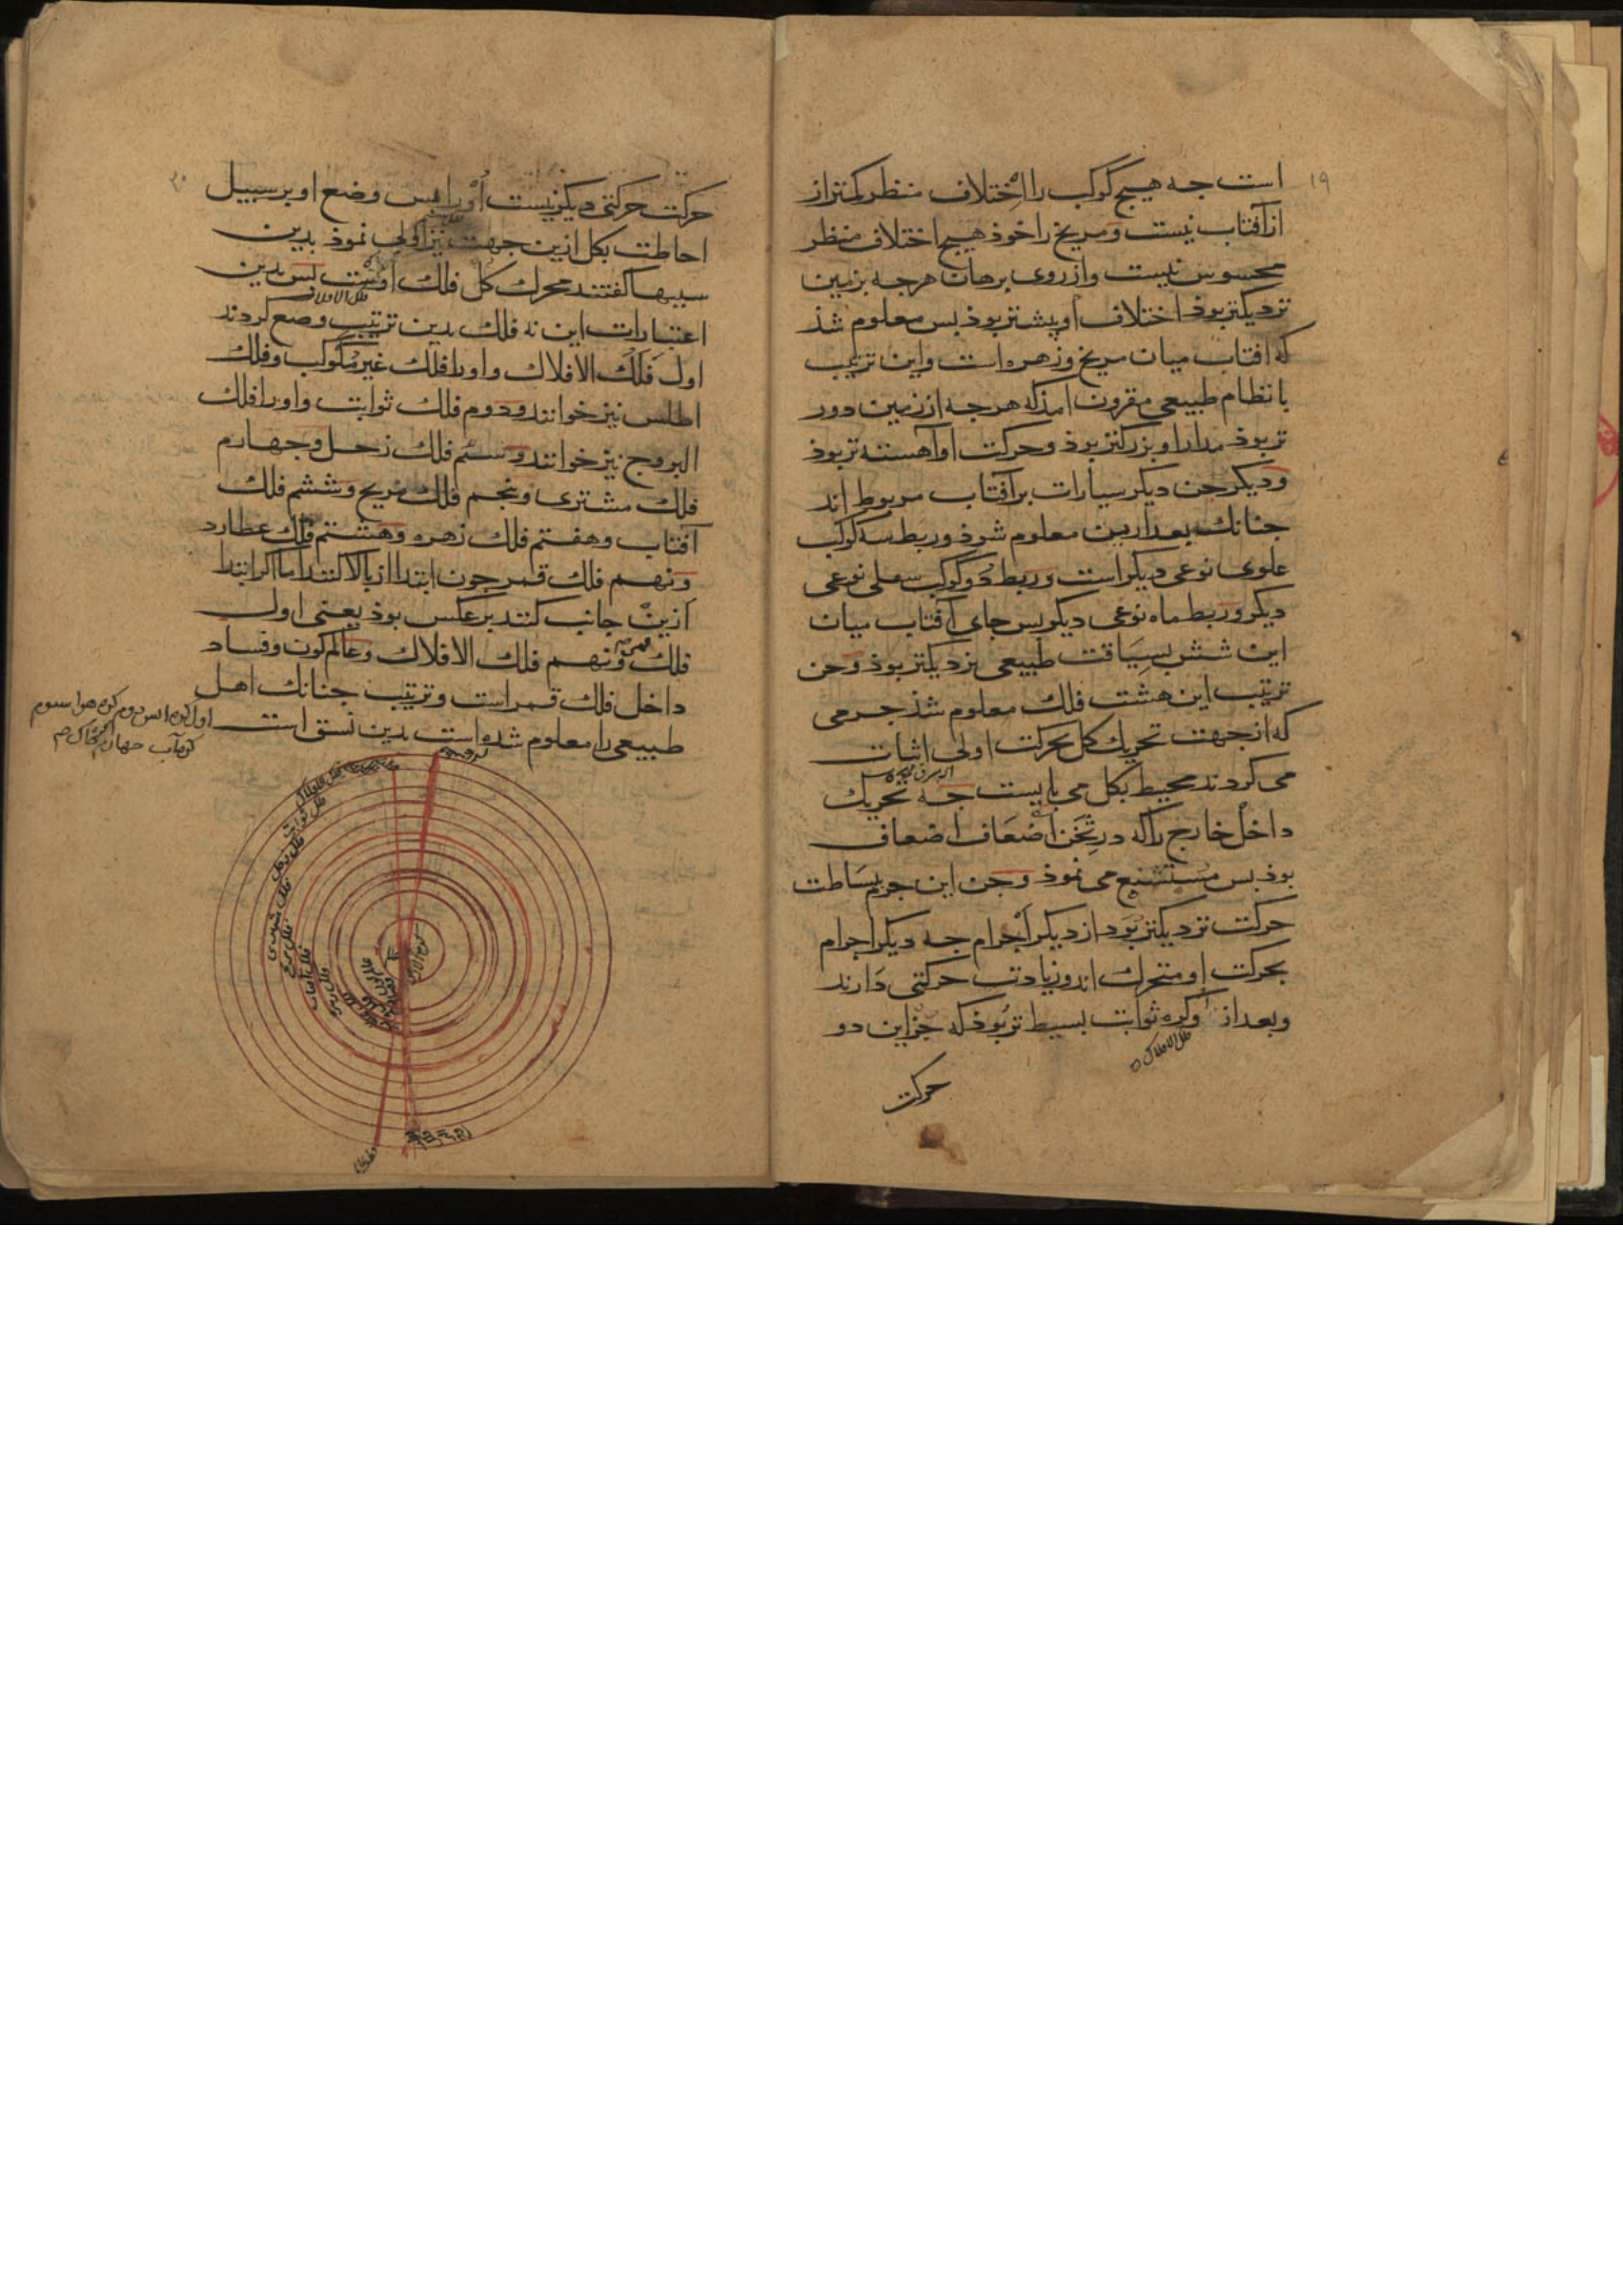 ۱۹
است جه هیج کوکب را اختلاف منظر کمتر از
از آفتاب نیست و مریخ را خوذ هیج اختلاف منظر
محسوس نیست و از روی برهان هرجه بزمین
نزدیکتر بوذ اختلاف او بیشتر بوذ بس معلوم شذ
که افتاب میان مریخ و زهره است و این ترتیب
با نظام طبیعی مقرون امذ که هرجه از زمین دور
تر بوذ مدار او بزرکتر بوذ و حرکت او آهسته تر بوذ
و دیکر جن دیکر سیارات بر آفتاب مربوط اند
جنانک بعد ازین معلوم شوذ و ربط سه کوکب
علوی نوعی دیکر است و ربط دو کوکب سفلی نوعی
دیکر و ربط ماه نوعی دیکر بس جای آفتاب میان
این شش بسیاقت طبیعی نزدیکتر بوذ و جن
ترتیب این هشت فلک معلوم شذ جرمی
که از جهت تحریک کل بحرکت اولی اثبات
می کردند محیط بکل می بایست جه تحریک
داخل خارج را که در ثخن اضعاف اضعاف
بوذ بس مستشنع می نموذ و جن این جرم ببساطت
حرکت نزدیکتر بود از دیکر اجرام جه دیکر اجرام
بحرکت او متحرک اند و زیادت حرکتی دارند
و بعد از او کره ثوابت بسیط تر بوذ که جز این دو
فلک الافلاک
حرکت
۲۰
حرکت حرکتی دیکر نیست او را بس وضع او بر سبیل
احاطت بکل ازین جهت نیز اولی نموذ بدین
سببها کفتند محرک کل فلک اوست بس بدین
فلک الافلاک
اعتبارات این نه فلک بدین ترتیب وضع کردند
اول فلک الافلاک و او را فلک غیر مکوکب و فلک
اطلس نیز خوانند و دوم فلک ثوابت و او را فلک
البروج نیز خوانند و سئم فلک زحل و جهارم
فلک مشتری و بنجم فلک مریخ و ششم فلک
آفتاب و هفتم فلک زهره و هشتم فلک عطارد
و نهم فلک قمر جون ابتدا از بالا کنند اما اکر ابتدا
ازین جانب کنند بر عکس بوذ یعنی اول
فلک قمر و نهم فلک الافلاک و عالم کون و فساد
داخل فلک قمر است و ترتیب جنانک اهل
طبیعی را معلوم شده است بدین نسق است
اول کره اتس دوم کره هوا سیوم
کره آب جهارم کره خاک
فلک الافلاک
فلک ثوابت
فلک زحل
فلک مشتری
فلک مریخ
فلک آفتاب
فلک زهره